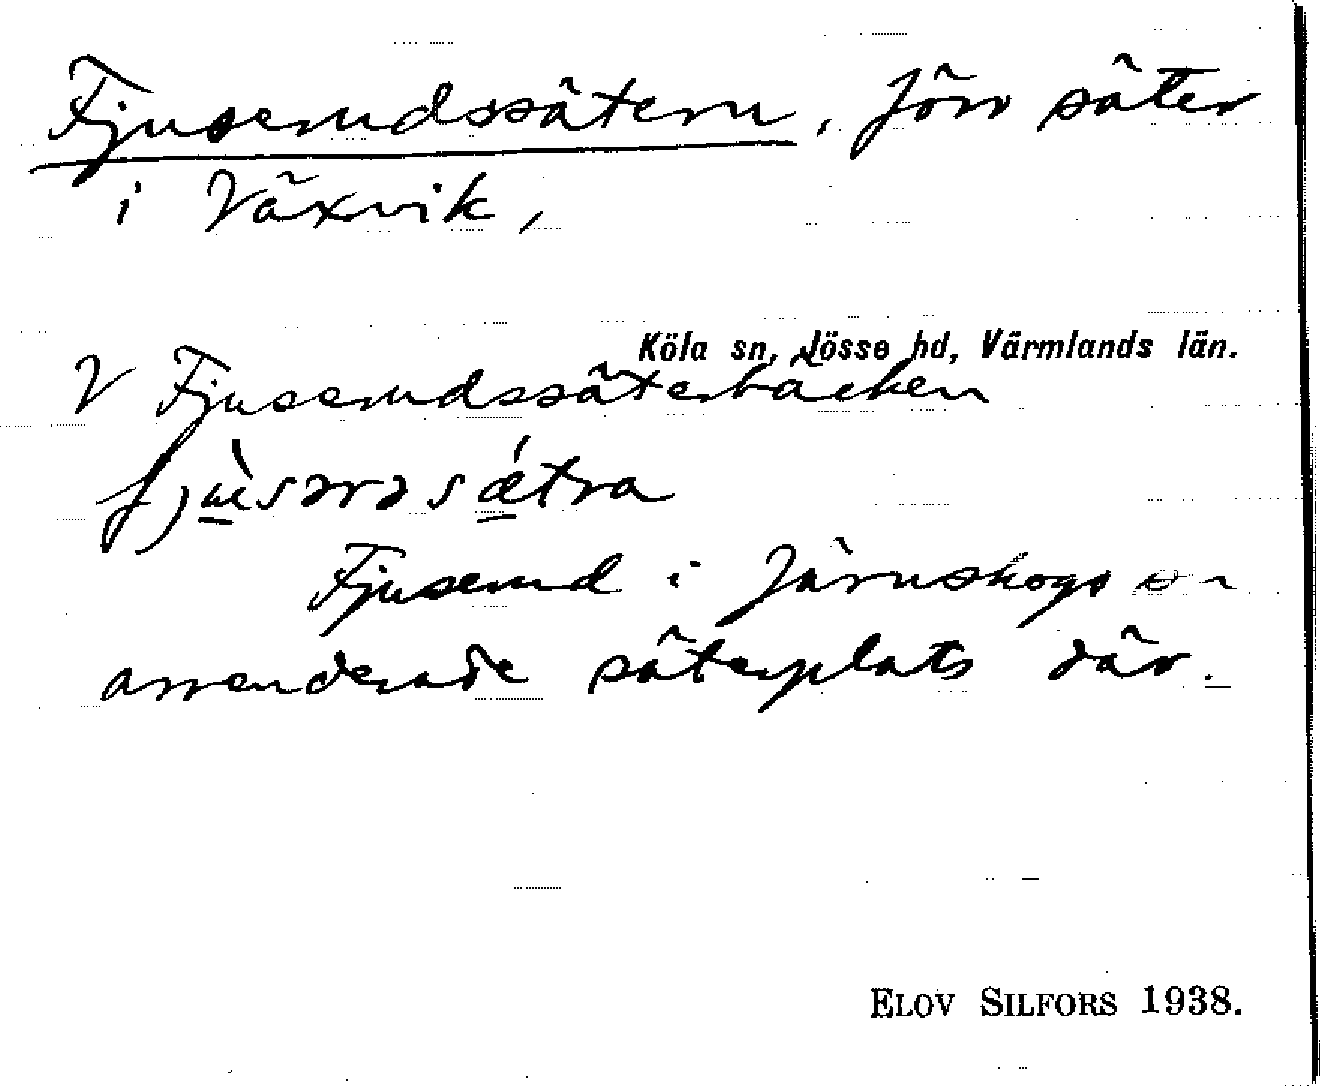 Fjuserudssätern, förr säter
i Växvik,
Köla sn, Jösse hd, Värmlands län.
V Fjuserudssäterbäcken
fjùsərəsǽtra
Fjuserud i Järnskogs sn
arrenderade säterplats där.
ELOV SILFORS 1938.